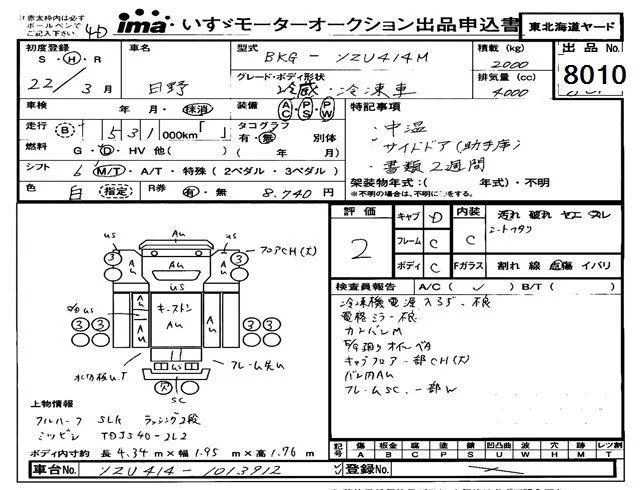 ima いすゞモーターオークション出品申込書 東北海道ヤード
初度登録 車名 型式 BKG-YZU414M 積載 (kg) 2000 出品 No.
S・H・R 22/3月 日野 グレード・ボディ形状 冷蔵・冷凍車 排気量 (cc) 4000 8010
車検 年・月・抹消 装備 AC・PS・PW 特記事項
走行 B 531 000km「 」 タコグラフ 有・無 別体 ・中温
燃料 G・D・HV 他( ) ( 年 月) ・サイドドア(助手席)
シフト 6 M/T・A/T・特殊 (2ペダル・3ペダル) ・書類2週間
色 白 指定 R券 有・無 8,740円 架装物年式:( 年式)・不明
※不明の場合は、不明に○をする。
評価 2 キャブ D 内装 C 汚れ 破れ ヤニ ズレ
フレーム C ニートフタワ
ボディ C Fガラス 割れ 線 点傷 イバリ
検査員報告 A/C( ✓ ) B/T( )
冷凍機電源入るが、不良
電格ミラー不良
カドバンM
E/G廻りオイルベタ
キャブフロア一部CH(大)
バン内AU
フレームSC、一部W
us Au us フロアCH(大)
3 Au Au Au 3
us
Au キーストン Au Au
3 3 3 3
水切板U.T us フレーム先U
SC
上物情報
フルハーフ SLK ラッシング2段
ミツビシ TDJS40-2L2
ボディ内寸約 長 4.34 m×幅 1.95 m×高 1.76 m
記号 傷 板金 腐 塗 錆 凹凸曲 波 穴 歪 レツ割
A B C P S U W H M T
車台No. YZU414-1013912 登録No.